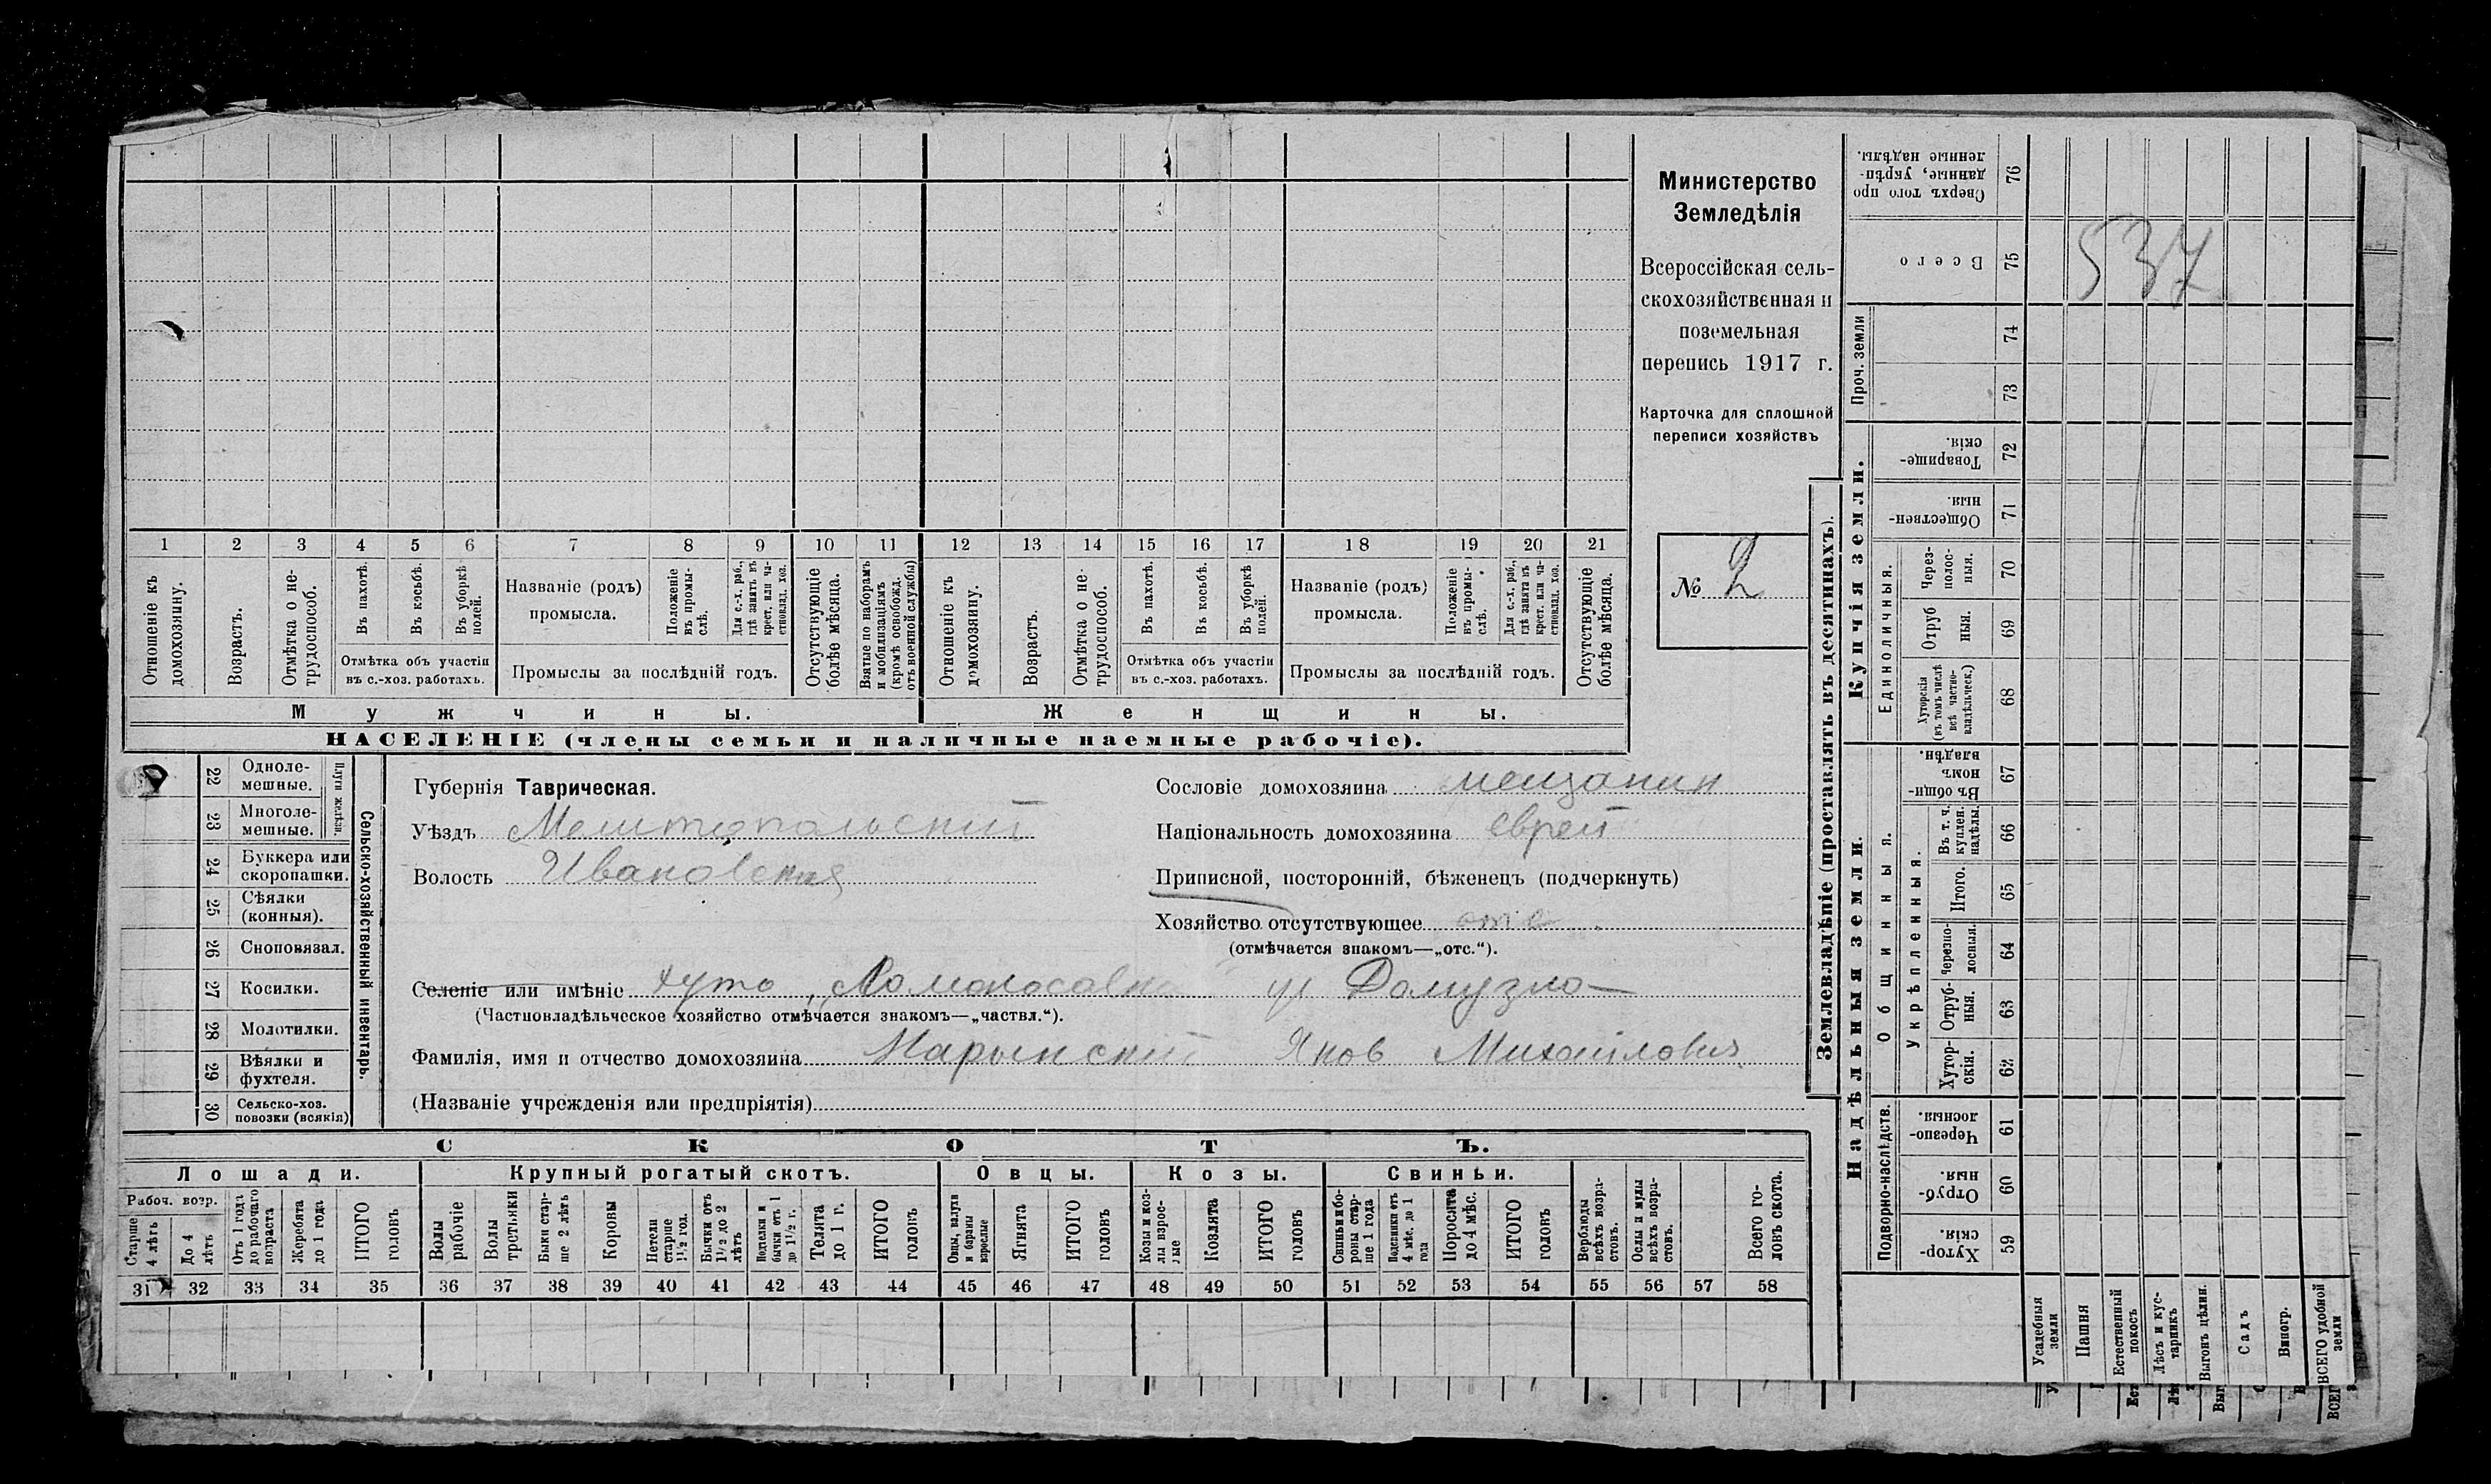 Министерство
Земледѣлія
Всероссійская сель-
скохозяйственная и
поземельная
перепись 1917 г.
Карточка для сплошной
переписи хозяйствъ
№ 2
1 2 3 4 5 6 7 8 9 10 11 12 13 14 15 16 17 18 19 20 21
Отношеніе къ домохозяину.
Возрастъ.
Отмѣтка о не-трудоспособ.
Въ пахотѣ.
Въ косьбѣ.
Въ уборкѣ полей.
Отмѣтка объ участіи
въ с.-хоз. работахъ.
Названіе (родъ)
промысла.
Положеніе въ промы-слѣ.
Для с.-х. раб., гдѣ занятъ въ крест. или ча-стновлад. хоз.
Промыслы за послѣдній годъ.
Отсутствующіе болѣе мѣсяца.
Взятые по наборамъ и мобилизаціямъ (кромѣ освобожд. отъ военной службы)
Отношеніе къ домохозяину.
Возрастъ.
Отмѣтка о не-трудоспособ.
Въ пахотѣ.
Въ косьбѣ.
Въ уборкѣ полей.
Отмѣтка объ участіи
въ с.-хоз. работахъ.
Названіе (родъ)
промысла.
Положеніе въ промы-слѣ.
Для с.-х. раб., гдѣ занята въ крест. или ча-стновлад. хоз.
Промыслы за послѣдній годъ.
Отсутствующіе болѣе мѣсяца.
Мужчины.
Женщины.
НАСЕЛЕНІЕ (члены семьи и наличные наемные рабочіе).
22 Одноле-мешные.
23 Многоле-мешные.
Плуги желѣзн.
24 Буккера или скоропашки.
25 Сѣялки (конныя).
26 Сноповязал.
27 Косилки.
28 Молотилки.
29 Вѣялки и фухтеля.
30 Сельско-хоз. повозки (всякія)
Сельско-хозяйственный инвентарь.
Губернія Таврическая.
Уѣздъ Мелитопольский
Волость Ивановская
Селеніе или имѣніе хуто „Ломоносовка
(Частновладѣльческое хозяйство отмѣчается знакомъ—„частвл.“).
Фамилія, имя и отчество домохозяина Нарынский Яков Михайлович
(Названіе учрежденія или предпріятія)
Сословіе домохозяина мещанин
Національность домохозяина еврей
Приписной, посторонній, бѣженецъ (подчеркнуть)
Хозяйство отсутствующее отс
(отмѣчается знакомъ—„отс.“).
СКОТЪ.
Лошади.
Крупный рогатый скотъ.
Овцы.
Козы.
Свиньи.
Рабоч. возр.
Старше 4 лѣтъ
До 4 лѣтъ
Отъ 1 года до рабочаго возраста
Жеребята до 1 года
ИТОГО головъ
Волы рабочіе
Волы третьяки
Быки стар-ше 2 лѣтъ
Коровы
Нетели старше 1½ год.
Бычки отъ 1½ до 2 лѣтъ
Подтелки и бычки отъ 1 до 1½ г.
Телята до 1 г.
ИТОГО головъ
Овцы, валухи и бараны взрослые
Ягнята
ИТОГО головъ
Козы и коз-лы взрос-лые
Козлята
ИТОГО головъ
Свиньи и бо-ровы стар-ше 1 года
Подсвинки отъ 4 мѣс. до 1 года
Поросята до 4 мѣс.
ИТОГО головъ
Верблюды всѣхъ возра-стовъ.
Ослы и мулы всѣхъ возра-стовъ.
Всего го-ловъ скота.
31 32 33 34 35 36 37 38 39 40 41 42 43 44 45 46 47 48 49 50 51 52 53 54 55 56 57 58
Землевладѣніе (проставлять въ десятинахъ).
Надѣльныя земли.
Купчія земли.
Проч. земли
Подворно-наслѣдств.
Общинныя.
Укрѣпленныя.
Единоличныя.
Сверхъ того про-данные, укрѣп-ленные надѣлы. 76
Всего 75
537
74
73
Товарище-скія. 72
Обществен-ныя. 71
Через-полос-ныя. 70
Отруб-ныя. 69
Хуторскія (въ томъ числѣ всѣ частно-владѣльческ.) 68
Въ общин-номъ владѣн. 67
Въ т. ч. куплен. надѣлы. 66
Итого. 65
Черезпо-лосныя. 64
Отруб-ныя. 63
Хутор-скія. 62
Черезпо-лосныя. 61
Отруб-ныя. 60
Хутор-скія. 59
Усадебныя земли
Пашня
Естественный покосъ
Лѣсъ и кус-тарникъ
Выгонъ цѣлин.
Садъ
Виногр.
ВСЕГО удобной земли